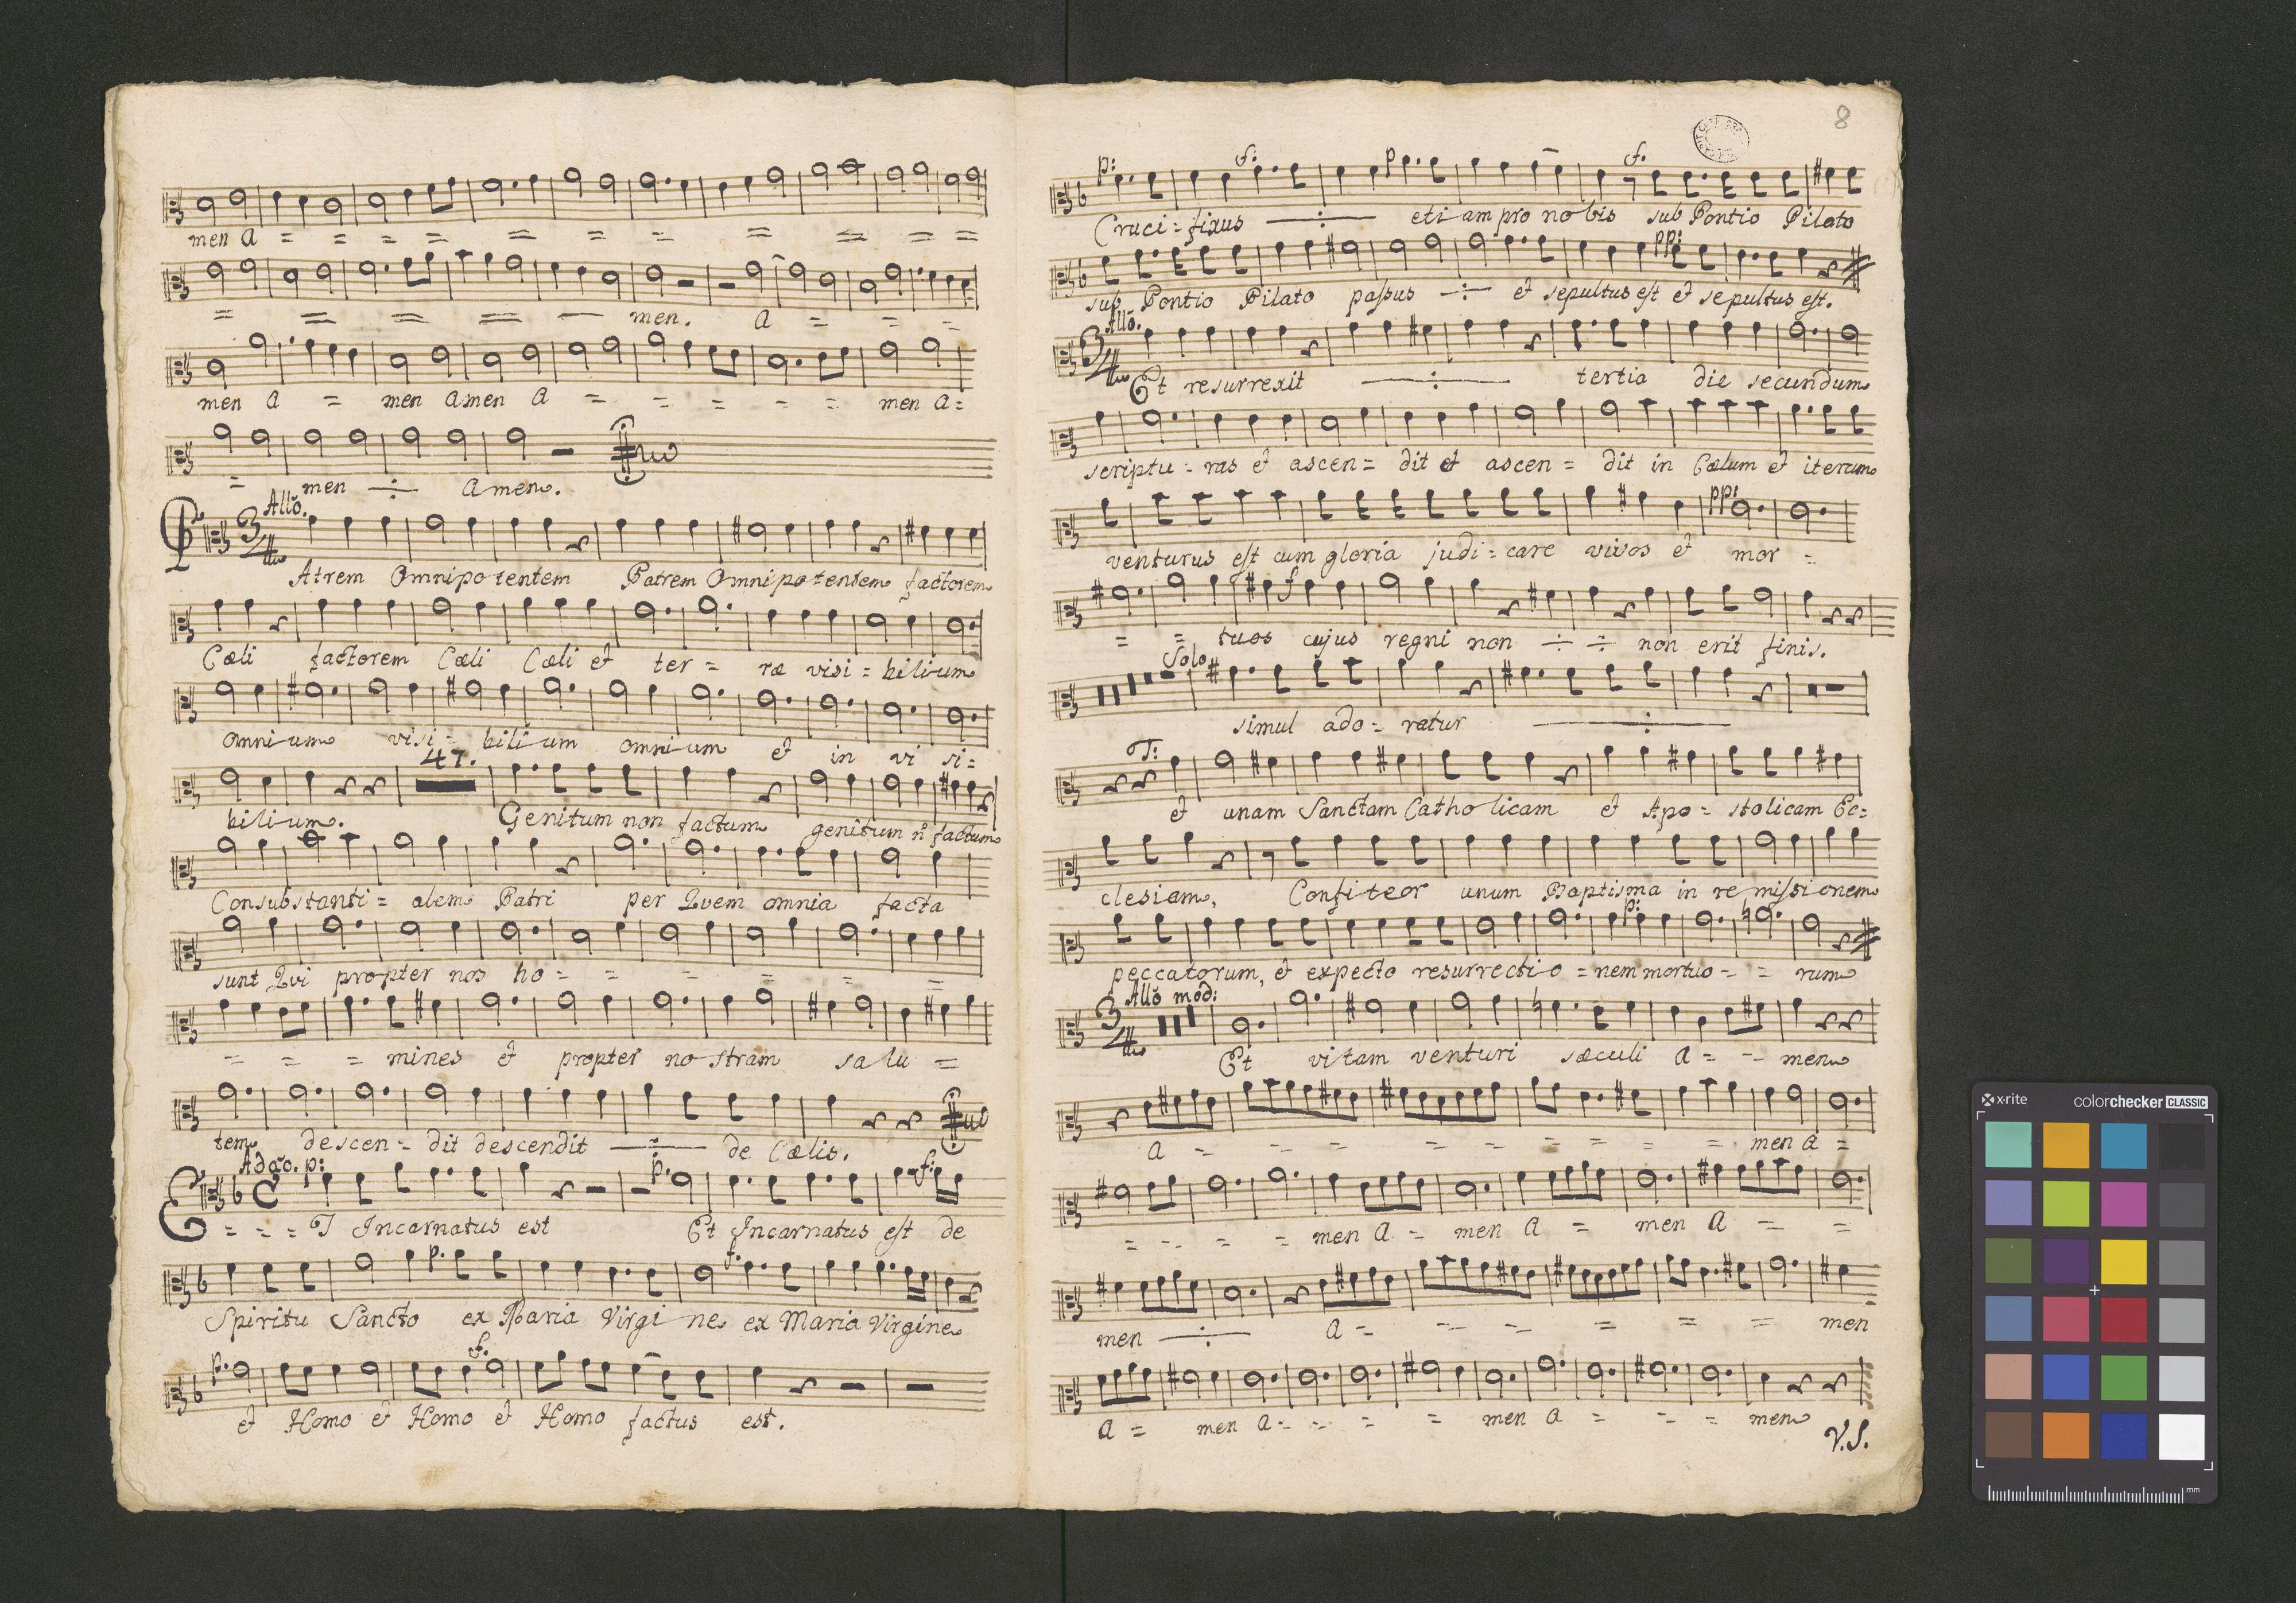 men A = = = = = = = = = = =
= = = = — men. A = = =
men A = men Amen A = = = = = men A =
= men ÷ Amen.
Allo.
3/4
PAtrem Omnipotentem Patrem Omnipotentem factorem
Cæli factorem Cæli Cæli et ter = ræ visi = bilium
omnium visi = bilium omnium et in vi si =
47.
bilium. Genitum non factum genitum nō factum
Consubstanti = alem Patri per Quem omnia facta
sunt Qui propter nos ho = = = = = =
= = = mines et propter nostram salu =
tem descen = dit descendit ÷ de Cælis.
Adgo. p: p. f:
E = = = T Incarnatus est Et Incarnatus est de
p. f.
Spiritu Sancto ex Maria Virgi ne ex Maria Virgine
p. f.
et Homo et Homo et Homo factus est.
8
p: f: p f.
Cruci = fixus ÷ eti am pro nobis sub Pontio Pilato
pp:
sub Pontio Pilato passus ÷ et sepultus est et sepultus est.
Allo.
3/4
Et resurrexit ÷ tertia die secundum
scriptu = ras et ascen = dit et ascen = dit in Cælum et iterum
pp:
venturus est cum gloria judi = care vivos et mor =
f
= = tuos cujus regni non ÷ ÷ non erit finis.
Solo
simul ado = ratur ÷
T:
et unam Sanctam Catholicam et Apo = stolicam Ec =
clesiam, Confiteor unum Baptisma in remissionem
p:
peccatorum, et expecto resurrectio = nem mortuo = = rum
Allo mod:
3/4
Et vitam venturi sæculi A = = men
A = = = = = = = = = men A =
= = = = men A = men A = men A = =
men ÷ A = = = = = = men
A = men A = = = = men A = = = men
V.S.